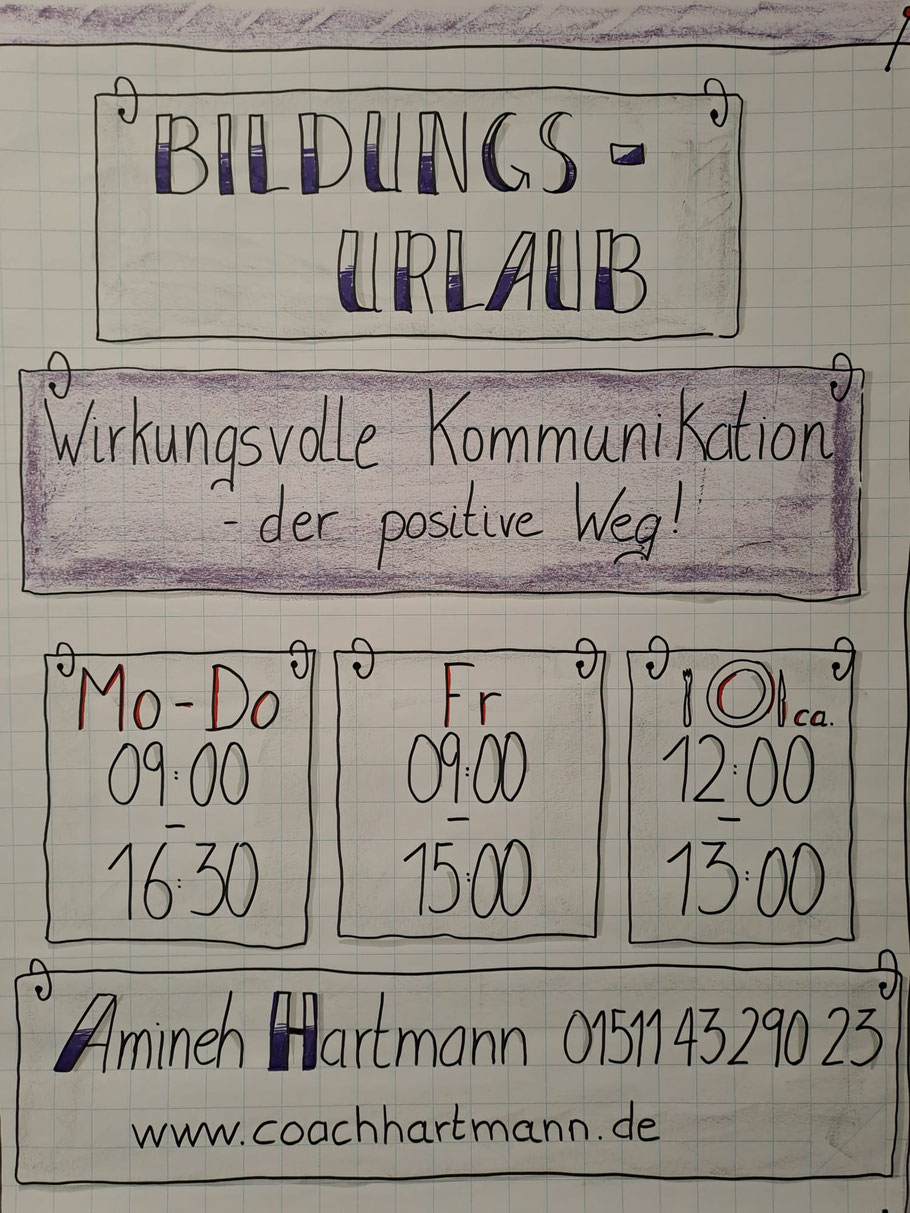 BILDUNGS-
URLAUB
Wirkungsvolle Kommunikation
- der positive Weg!
Mo-Do
09:00
–
16:30
Fr
09:00
–
15:00
ca.
12:00
–
13:00
Amineh Hartmann 01511 43 290 23
www.coachhartmann.de